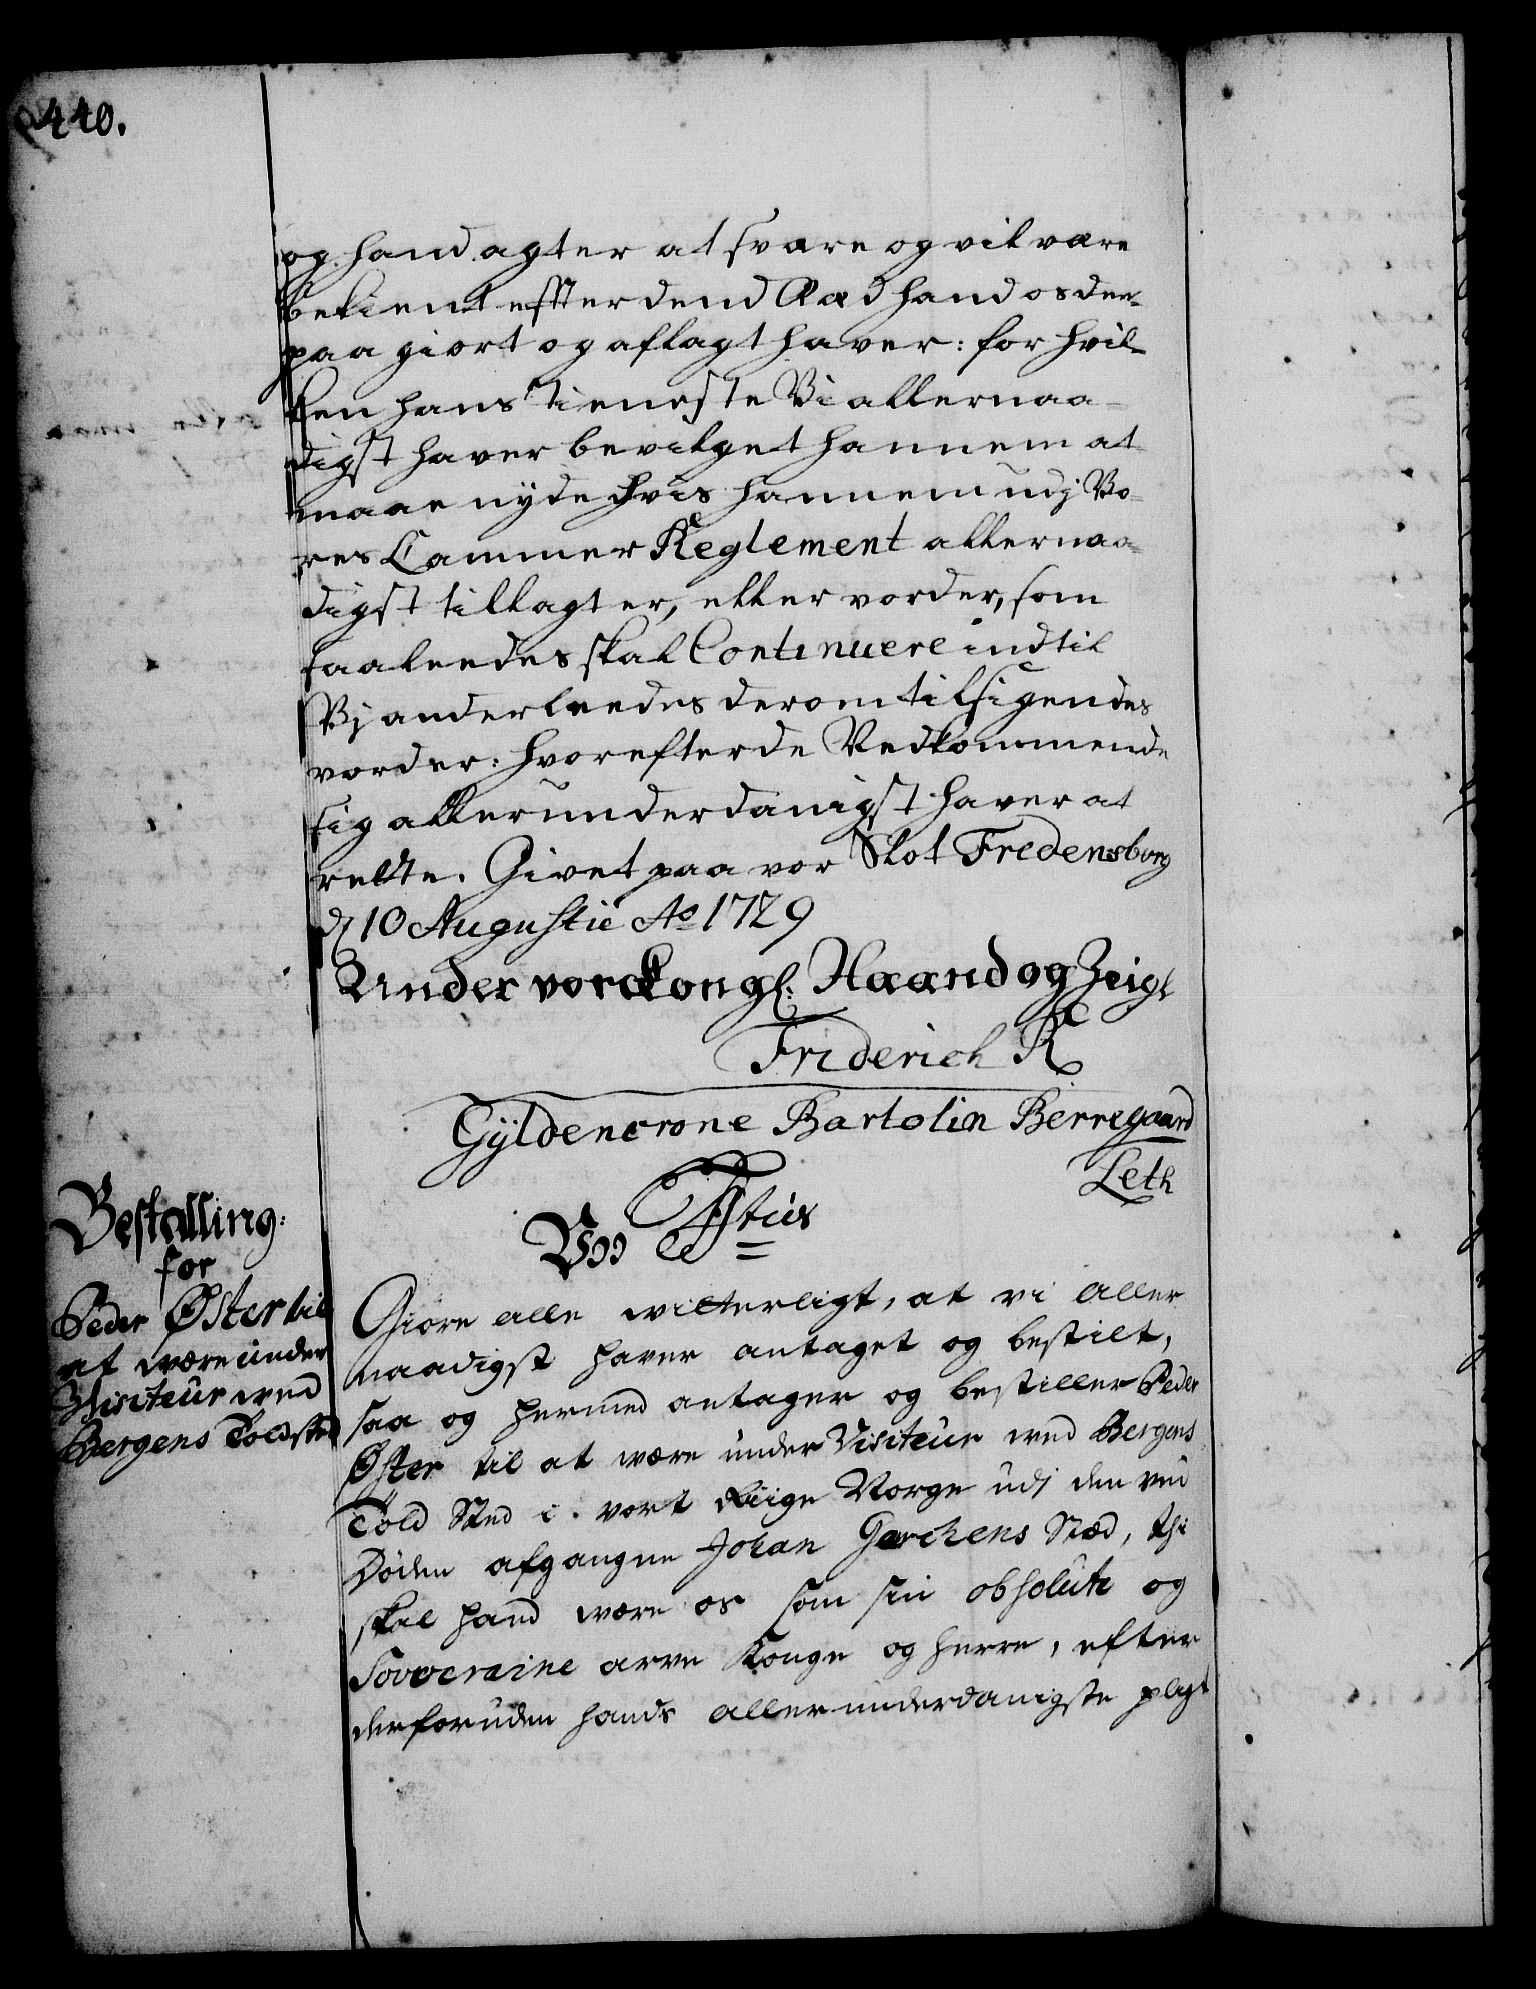 440.
og hand agter at svare og vil være
bekient effter dend Æed hand os der-
paa giort og aflagt haver: for hvil-
ken hans tieneste Vi allernaa-
digst haver bevilget hannem at
maae nyde hvis hannem udj Vo-
res Cammer Reglement allernaa-
digst tillagt er, eller vorder, som
saaleedes skal Continuere indtil
Vj anderleedes derom tilsigendes
vorder: hvorefter de Vedkommende
sig allerunderdanigst haver at
rette. Givet paa vor Slot Fredensborg
d 10 Augustii Ao 1729
Under vor Kongl: Haand og Zeigl
Friderich R
Gyldencrone Bartolin Berregaard
Leth
Bestalling:
for
Peder Øster til
at være under
Visiteur ved
Bergens Toldsted
Giøre alle witterligt, at vi aller
naadigst haver antaget og bestilt,
saa og hermed antager og bestiller Peder
Øster til at være under Visiteur ved Bergens
Told Sted i vort Riige Norge udj den ved
Døden afgangne Johan Gerckens Stæd, thi
skal hand være os som sin absolute og
Souveraine arve Konge og herre, efter
derforuden hands allerunderdanigste pligt